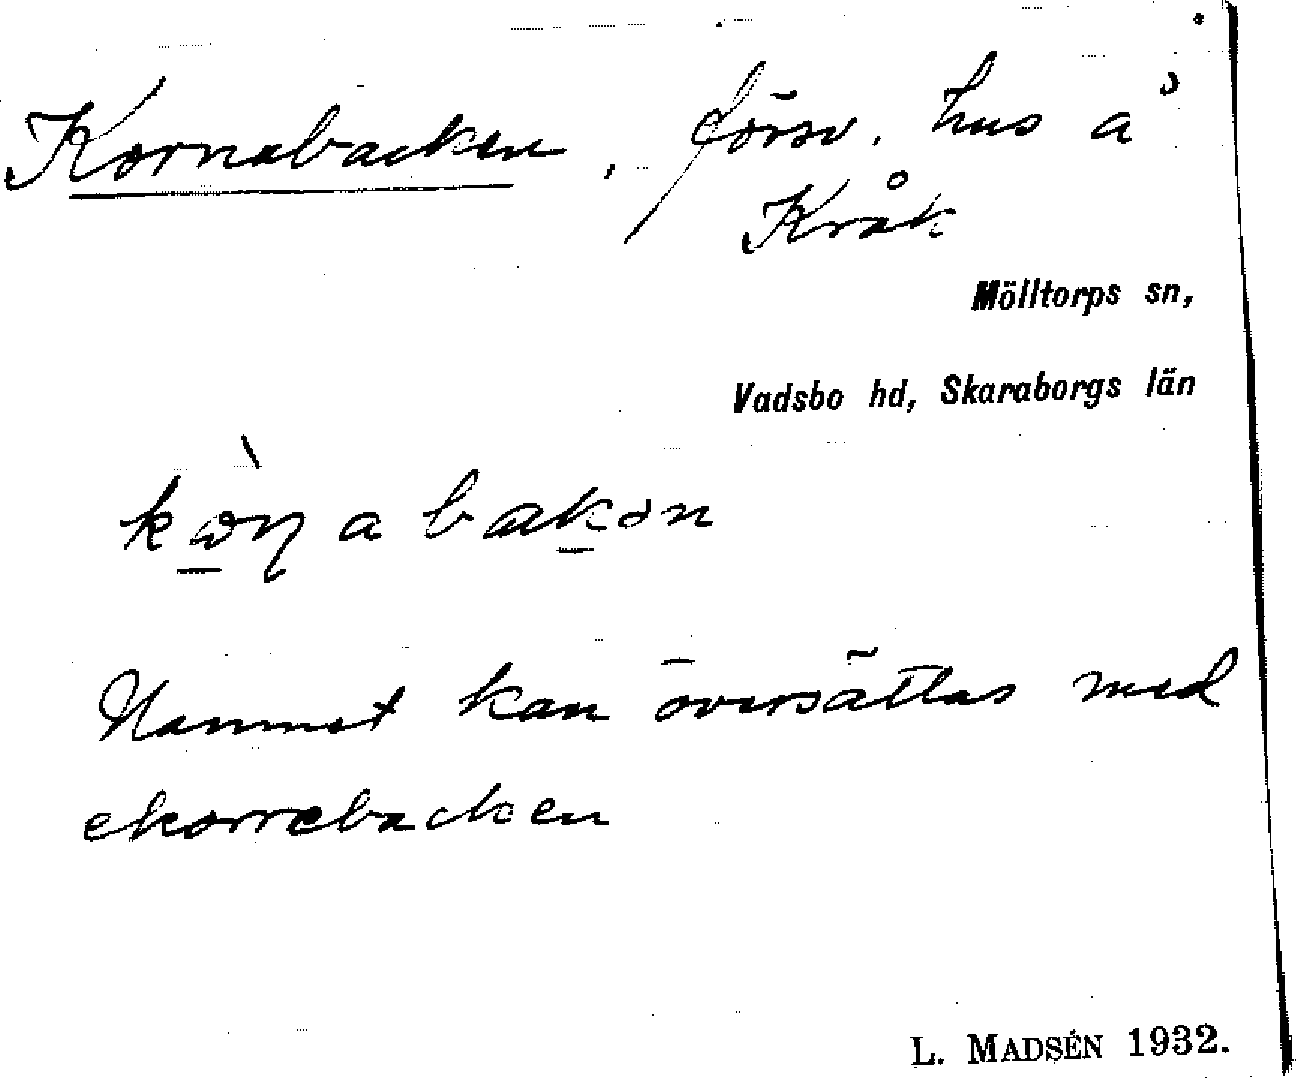 Kornebacken, försv. hus å
Kråk
Mölltorps sn,
Vadsbo hd, Skaraborgs län
Namnet kan översättas med
ekorrebacken
L. MADSÉN 1932.